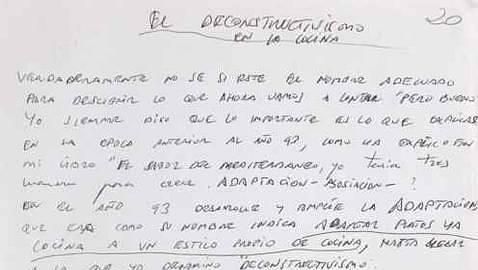 EL DECONSTRUCTIVISMO 20
EN LA COCINA
VERDADERAMENTE NO SE SI ESTE EL NOMBRE ADECUADO
PARA DESCRIBIR LO QUE AHORA VAMOS A CONTAR PERO BUENO
YO SIEMPRE DIGO QUE LO IMPORTANTE ES LO QUE EXPLICAS
EN LA EPOCA ANTERIOR AL AÑO 92, COMO YA EXPLICO EN
MI LIBRO "EL SABOR DEL MEDITERRANEO, yo tenia tres
maneras para crear. ADAPTACION - ASOCIACION - ?
EN EL AÑO 93 DESARROLLE Y AMPLIE LA ADAPTACION
QUE COMO SU NOMBRE INDICA ADAPTAR PLATOS YA
COCINA A UN ESTILO PROPIO DE COCINA, HASTA LLEGAR
A LO QUE YO DENOMINO "DECONSTRUCTIVISMO.